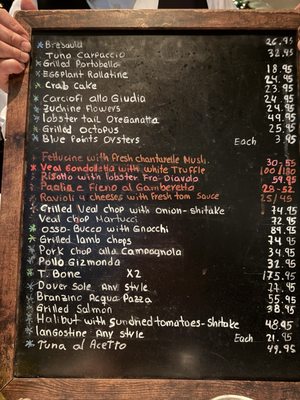 Bresaola 26.95
Tuna Carpaccio 32.95
Grilled Portobello 18.95
Eggplant Rollatine 24.95
Crab Cake 23.95
Carciofi allo Giudia 24.95
Zuchine Flowers 24.95
lobster tail Oreganatta 49.95
Grilled Octopus 25.95
Blue Points Oysters Each 3.95
Fellucine with Fresh chantarelle Mush. 30-55
Veal Gondoletta with white Truffle 100/130
Risotto with lobster Fra-Diavolo 59.95
Paglia e Fieno al Gamberetto 28-52
Ravioli 4 cheeses with fresh tom Sauce 25/45
Grilled Veal chop with onion-shitake 74.95
Veal chop Martucci 72.95
Osso-Bucco with Gnocchi 89.95
Grilled lamb chops 74.95
Pork chop alla Campagnola 34.95
Pollo Gizmonda 32.95
T. Bone X2 175.95
Dover Sole Any style
Branzino Acqua Pazza 55.95
Grilled Salmon 38.95
Halibut with Sundried tomatoes-Shitake 48.95
langostine Any style Each 21.95
Tuna al Acetto 49.95